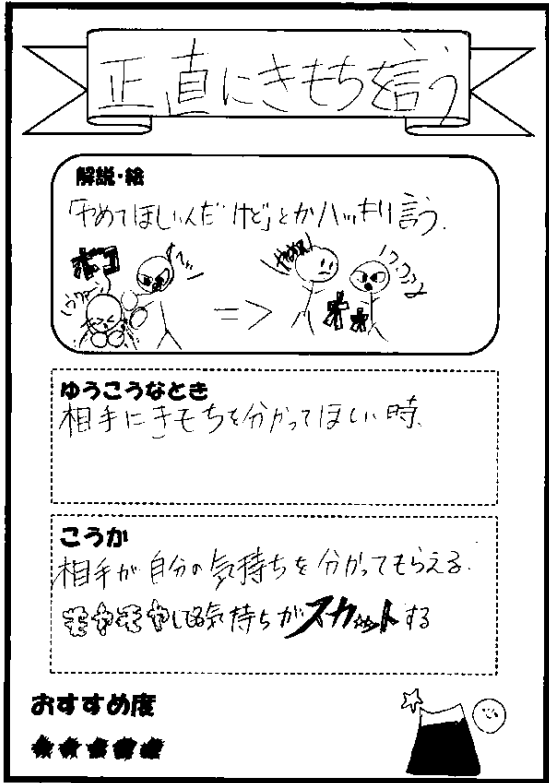 正直にきもちを言う
解説・絵
「やめてほしいんだけど」とかハッキリ言う。
ボコ
やめて!
ゆうこうなとき
相手にきもちを分かってほしい時、
こうか
相手が自分の気持ちを分かってもらえる。
モヤモヤしてる気持ちがスカットする
おすすめ度
★★★★★